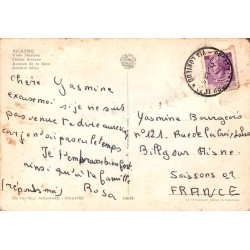 NICASTRO
Viale Stazione
Station Avenue
Avenue de la Gare
Bahnhof Allee
Chère Yasmine
excuse moi si je ne suis
pas venue te dire au revoir
car j'en ai pas eu le temps
Je t'embrasse bien fort
ainsi qu'à la famille
(réponds moi) Rosa
Yasmine Bourgeois
n°121, Rue de la
Billy sur Aisne
Soissons 02
FRANCE
NICASTRO